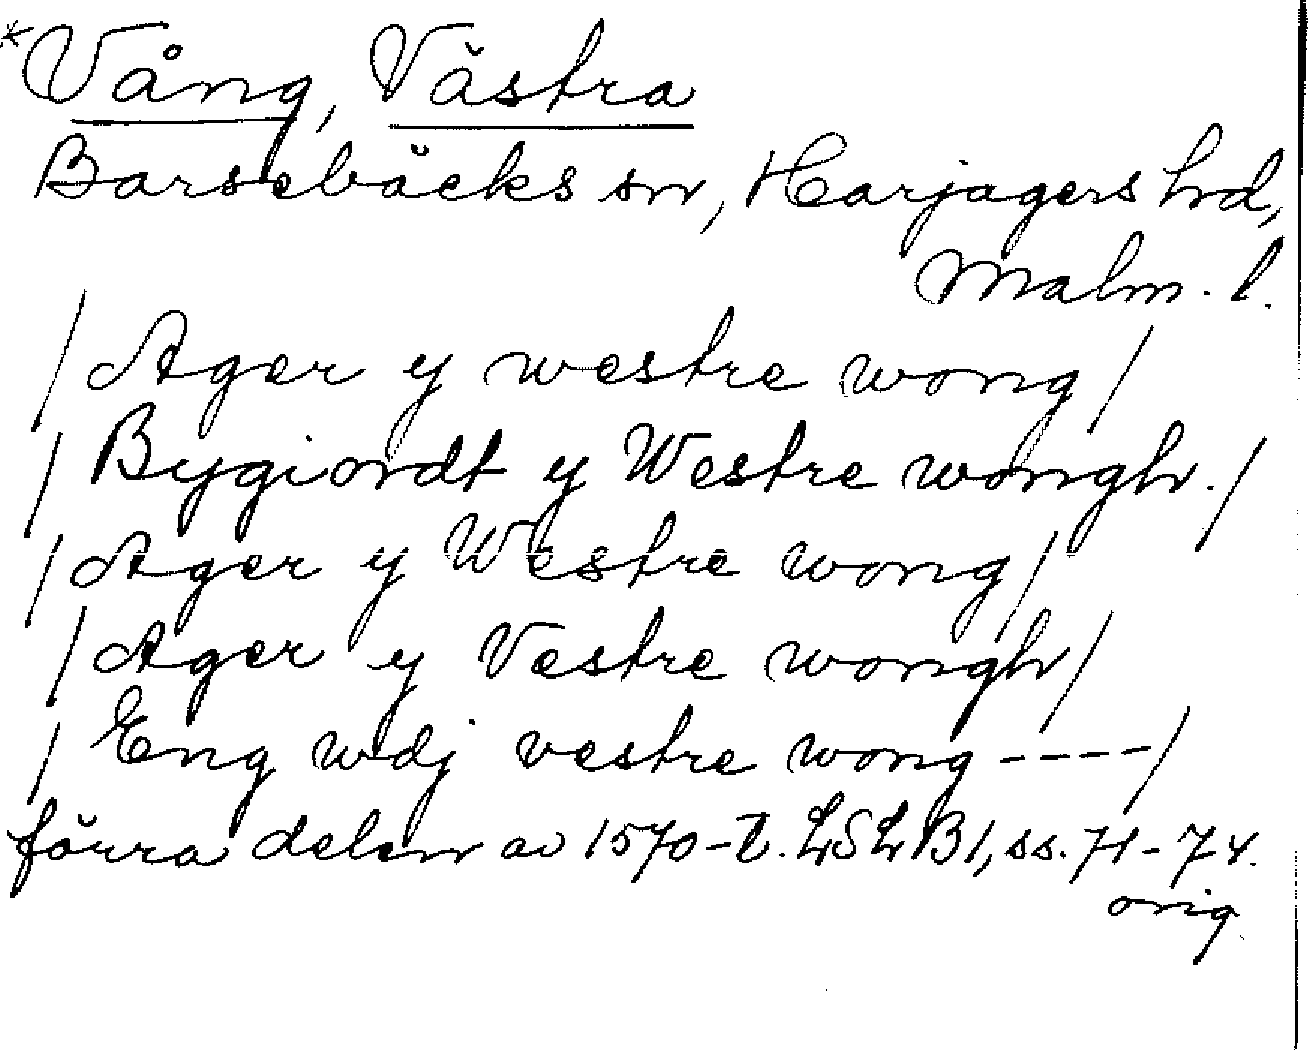 *Vång, Västra
Barsebäcks sn, Harjagers hd,
Malm. l.
/ Ager y westre wong /
/ Bygiordt y Westre wongh. /
/ Ager y Westre wong /
/ Ager y Vestre wongh /
/ Eng wdj vestre wong ---- /
förra delen av 1570-t. LSLB1, ss. 71-74.
orig.